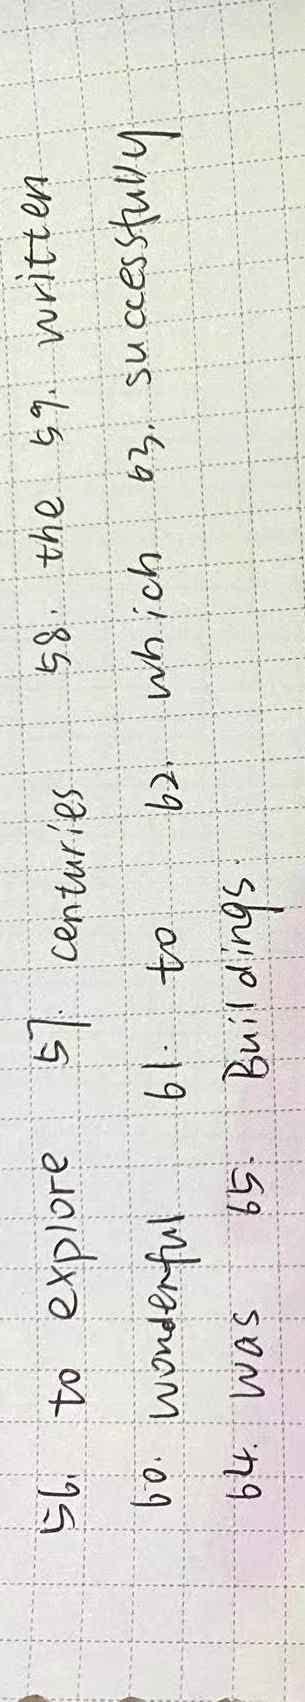 56. to explore 57. centuries 58. the 59. written
60. wonderful 61. to 62. which 63. successfully
64. was 65. Buildings.